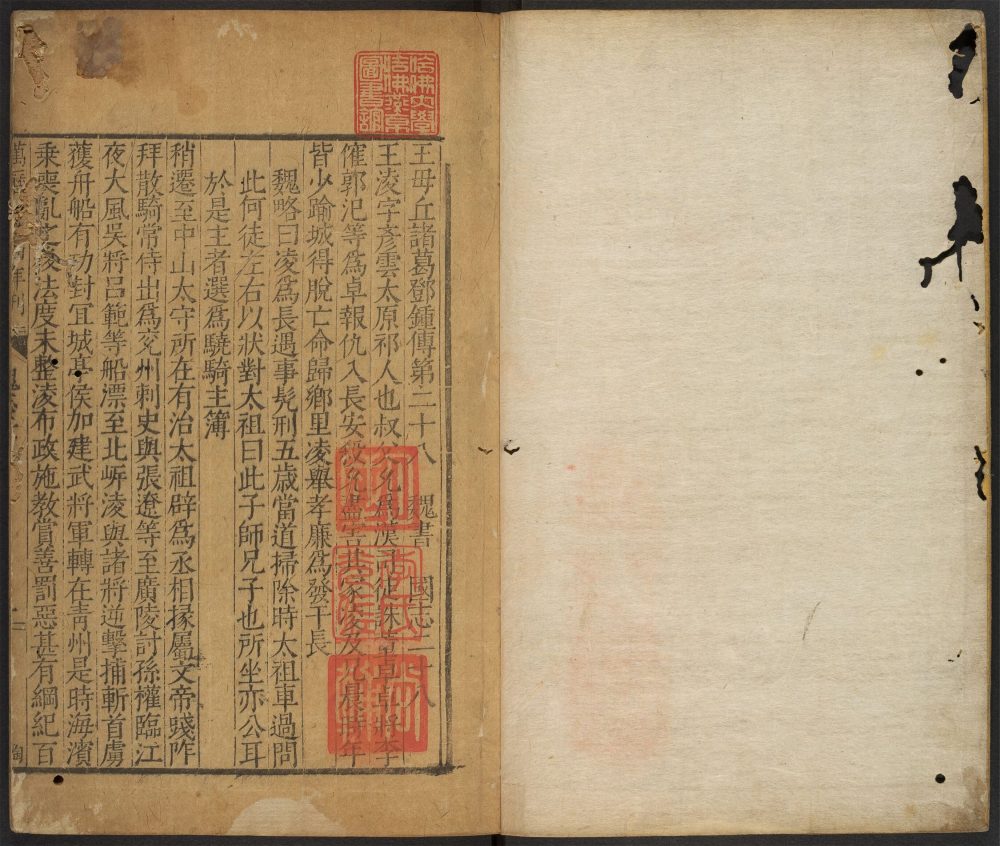 哈佛大學
哈佛燕京
圖書館
王毋丘諸葛鄧鍾傳第二十八 魏書 國志二十八
王淩字彥雲太原祁人也叔父允爲漢司徒誅董卓卓將李
傕郭汜等爲卓報仇入長安殺允盡害其家淩及兄晨時年
皆少踰城得脫亡命歸鄉里淩舉孝廉爲發干長
魏略曰淩爲長遇事髠刑五歲當道掃除時太祖車過問
此何徒左右以狀對太祖曰此子師兄子也所坐亦公耳
於是主者選爲驍騎主簿
稍遷至中山太守所在有治太祖辟爲丞相掾屬文帝踐阼
拜散騎常侍出爲兖州刺史與張遼等至廣陵討孫權臨江
夜大風吳將呂範等船漂至北岍淩與諸將逆擊捕斬首虜
獲舟船有功封宜城亭侯加建武將軍轉在靑州是時海濱
乗喪亂之後法度未整淩布政施教賞善罰惡甚有綱紀百